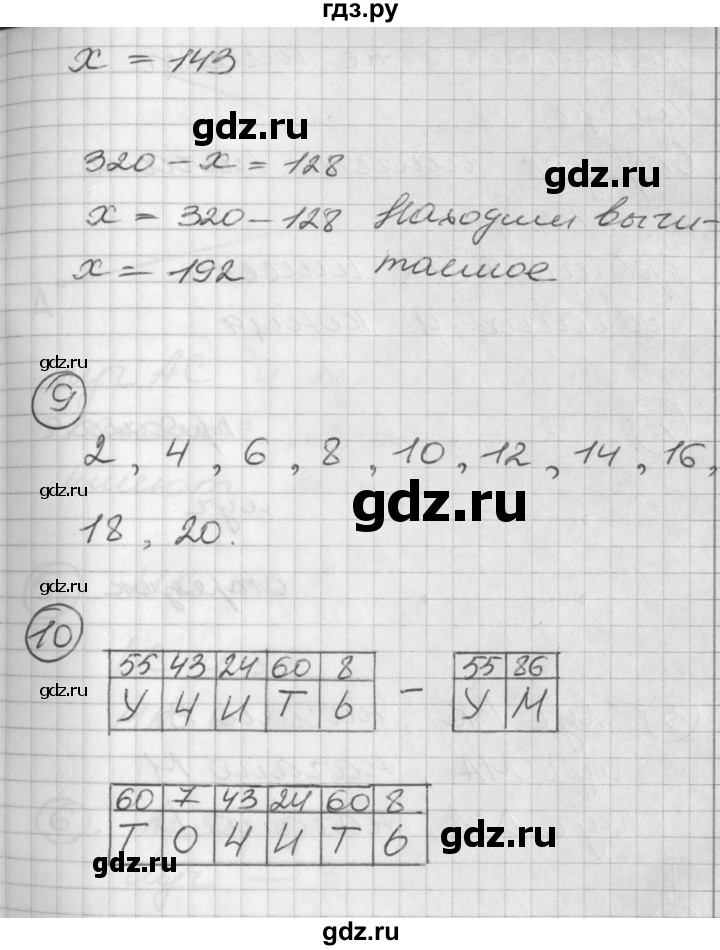 гдз.ру
x = 143
gdz.ru
320 - x = 128
gdz.ru
x = 320 - 128 Находим вычи-
x = 192 таемое
gdz.ru
9
2, 4, 6, 8, 10, 12, 14, 16,
gdz.ru
gdz.ru
18, 20.
gdz.ru
10
55 43 24 60 8 55 86
gdz.ru
У Ч И Т Ь - У М
60 7 43 24 60 8
Т О Ч И Т Ь
gdz.ru
gdz.ru
gdz.ru